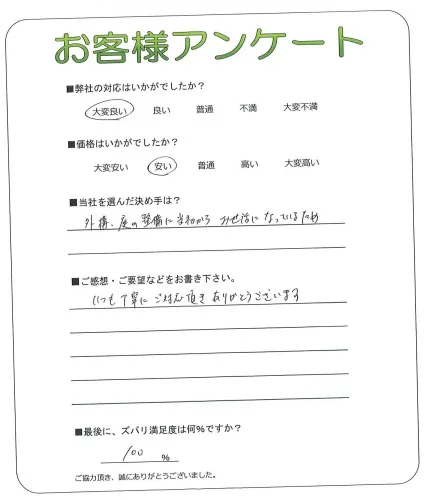 お客様アンケート
■弊社の対応はいかがでしたか？
大変良い 良い 普通 不満 大変不満
■価格はいかがでしたか？
大変安い 安い 普通 高い 大変高い
■当社を選んだ決め手は？
外構、庭の整備に当初から お世話になっているため
■ご感想・ご要望などをお書き下さい。
いつも丁寧に ご対応頂き ありがとうございます
■最後に、ズバリ満足度は何%ですか？
100 %
ご協力頂き、誠にありがとうございました。